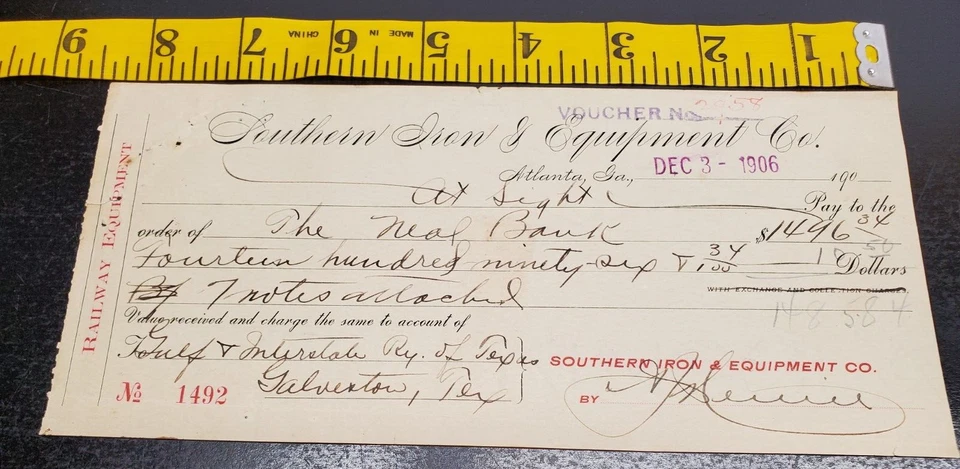 9 8 7 CHINA MADE IN 6 5 4 3 2 1
VOUCHER No 2958
Southern Iron & Equipment Co.
Atlanta, Ga., DEC 3 - 1906 190
At Sight Pay to the
order of The Neal Bank $1496 34
Fourteen hundred ninety-six & 34/100 Dollars
7 notes attached WITH EXCHANGE AND COLLECTION CHARGES
1485.84
Value received and charge the same to account of
To Gulf & Interstate Ry. of Texas
Galveston, Tex
SOUTHERN IRON & EQUIPMENT CO.
BY
No 1492
RAILWAY EQUIPMENT